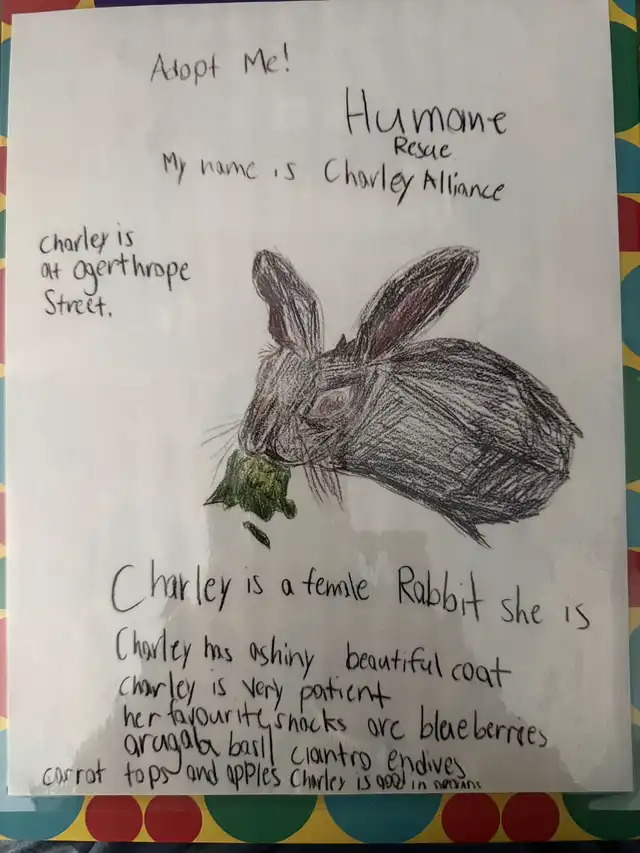 Adopt Me!
Humane
Rescue
My name is Charley Alliance
Charley is
at Ogerthrope
Street.
Charley is a female Rabbit she is
Charley has a shiny beautiful coat
Charley is very patient
her favourite snacks are blueberries
arugala basil ciantro endives
carrot tops and apples Charley is good in